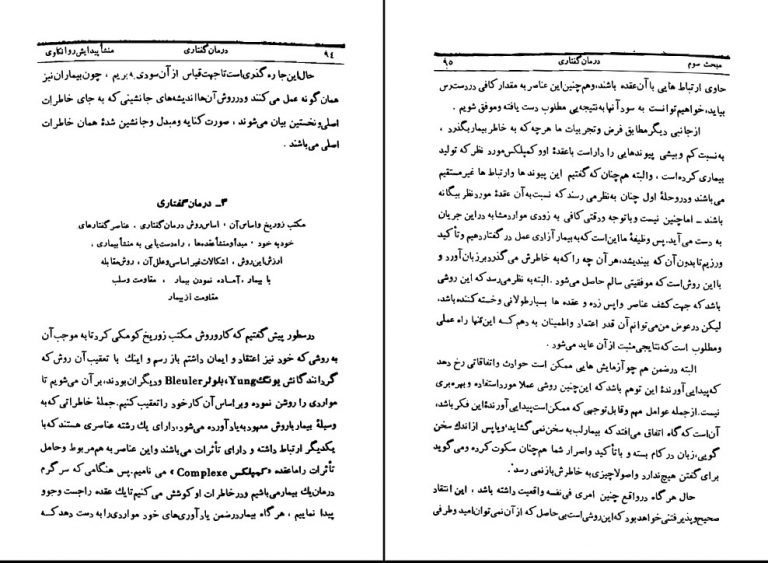 ۹٤ درمان گفتاری منشأ پیدایش روانکاوی
حال این جا ره گذری است تا جهت قیاس از آن سودی به بریم ، چون بیماران نیز
همان گونه عمل می کنند و در روش آن ها اندیشه های جانشینی که به جای خاطرات
اصلی و نخستین بیان می شوند ، صورت کنایه و مبدل و جانشین شدهٔ همان خاطرات
اصلی می باشند .
۳ـ درمان گفتاری
مکتب زوریخ و اساس آن ، اساس روش درمان گفتاری ، عناصر گفتارهای
خود به خود ، مبدأ و منشأ عقده ها ، راه دست یابی به منشأ بیماری ،
ارزش این روش ، اشکالات غیر اساسی و علل آن ، روش مقابله
با بیمار ، آماده نمودن بیمار ، مقاومت و سلب
مقاومت از بیمار
در سطور پیش گفتیم که کار و روش مکتب زوریخ کومکی کرد تا به موجب آن
به روشی که خود نیز اعتقاد و ایمان داشتم باز رسم و اینك با تعقیب آن روش که
گردانندگانش یونگ Yung، بلولر Bleuler و دیگران بودند، بر آن می شویم تا
مواردی را روشن نموده و بر اساس آن کار خود را تعقیب کنیم. جملهٔ خاطراتی که به
وسیلهٔ بیمار با روش معهود به یاد آورده می شود، دارای یك رشته عناصری هستند که با
یکدیگر ارتباط داشته و دارای تأثرات می باشند و این عناصر به هم مربوط و حامل
تأثرات را ما عقده «کمپلکس Complexe» می نامیم. پس هنگامی که سر گرم
درمان یك بیمار می باشیم و در خاطرات او کوشش می کنیم تا یك عقده را جست و جو
پیدا نماییم ، هر گاه بیمار در ضمن یادآوری های خود مواردی را به دست دهد که
مبحث سوم درمان گفتاری ۹۵
حاوی ارتباط هایی با آن عقده باشند، و هم چنین این عناصر به مقدار کافی در دست رس
بیاید، خواهیم توانست به سود آنها به نتیجه یی مطلوب دست یافته و موفق شویم .
از جانبی دیگر مطابق فرض و تجربیات ما هر چه که به خاطر بیمار بگذرد ،
به نسبت کم و بیشی پیوندهایی را دارا ست با عقدهٔ او و کمپلکس مورد نظر که تولید
بیماری کرده است ، و البته هم چنان که گفتیم این پیوند ها و ارتباط ها غیر مستقیم
می باشند و در وحلهٔ اول چنان به نظر می رسد که نسبت به آن عقدهٔ مورد نظر بیگانه
باشند ـ اما چنین نیست و با توجه و دقتی کافی به زودی موارد مشابه در این جریان
به دست می آید. پس وظیفهٔ ما این است که به بیمار آزادی عمل در گفتار دهیم و تأکید
ورزیم تا بدون آن که بیندیشد، هر آن چه را که به خاطرش می گذرد بر زبان آورد و
با این روش است که موفقیتی سالم حاصل می شود . البته به نظر می رسد که این روشی
باشد که جهت کشف عناصر واپس زده و عقده ها بسیار طولانی و خسته کننده باشد،
لیکن در عوض من می توانم آن قدر اعتماد و اطمینان به دهم که این تنها راه عملی
و مطلوب است که نتایجی مثبت از آن عاید می شود .
البته در ضمن هم چو آزمایش هایی ممکن است حوادث و اتفاقاتی رخ دهد
که پیدایی آورندهٔ این توهم باشد که این چنین روشی عملا مورد استفاده و بهره بری
نیست. از جمله عوامل مهم و قابل توجهی که ممکن است پیدایی آورندهٔ این فکر باشد،
آن است که گاه اتفاق می افتد که بیمار لب به سخن نمی گشاید، و یا پس از اندك سخن
گویی، زبان در کام بسته و با تأکید و اصرار شما هم چنان سکوت کرده و می گوید
برای گفتن هیچ ندارد و اصولا چیزی به خاطرش باز نمی رسد .
حال هر گاه در واقع چنین امری فی نفسه واقعیت داشته باشد ، این انتقاد
صحیح و پذیرفتنی خواهد بود که این روشی است بی حاصل که از آن نمی توان امید و طرفی